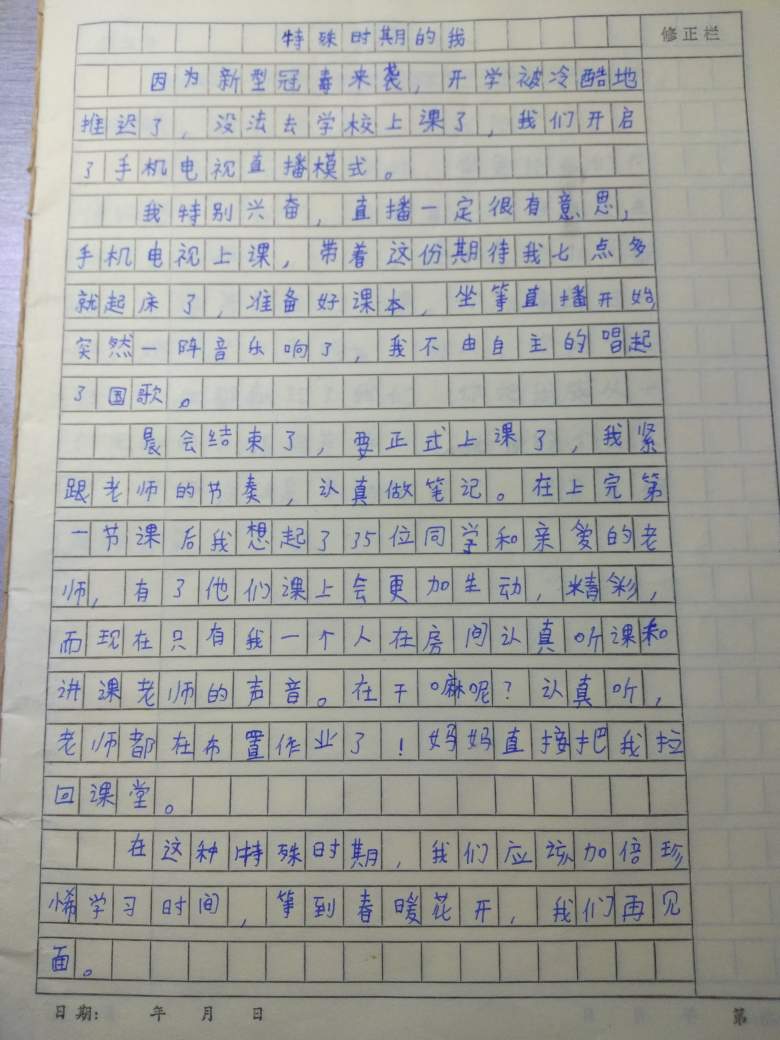 特殊时期的我
修正栏
因为新型冠毒来袭，开学被冷酷地
推迟了，没法去学校上课了，我们开启
了手机电视直播模式。
我特别兴奋，直播一定很有意思，
手机电视上课，带着这份期待我七点多
就起床了，准备好课本，坐等直播开始，
突然一阵音乐响了，我不由自主的唱起
了国歌。
晨会结束了，要正式上课了，我紧
跟老师的节奏，认真做笔记。在上完第
一节课后我想起了35位同学和亲爱的老
师，有了他们课上会更加生动，精彩，
而现在只有我一个人在房间认真听课和
讲课老师的声音。在干嘛呢？认真听，
老师都在布置作业了！妈妈直接把我拉
回课堂。
在这种特殊时期，我们应该加倍珍
惜学习时间，等到春暖花开，我们再见
面。
日期： 年 月 日 第